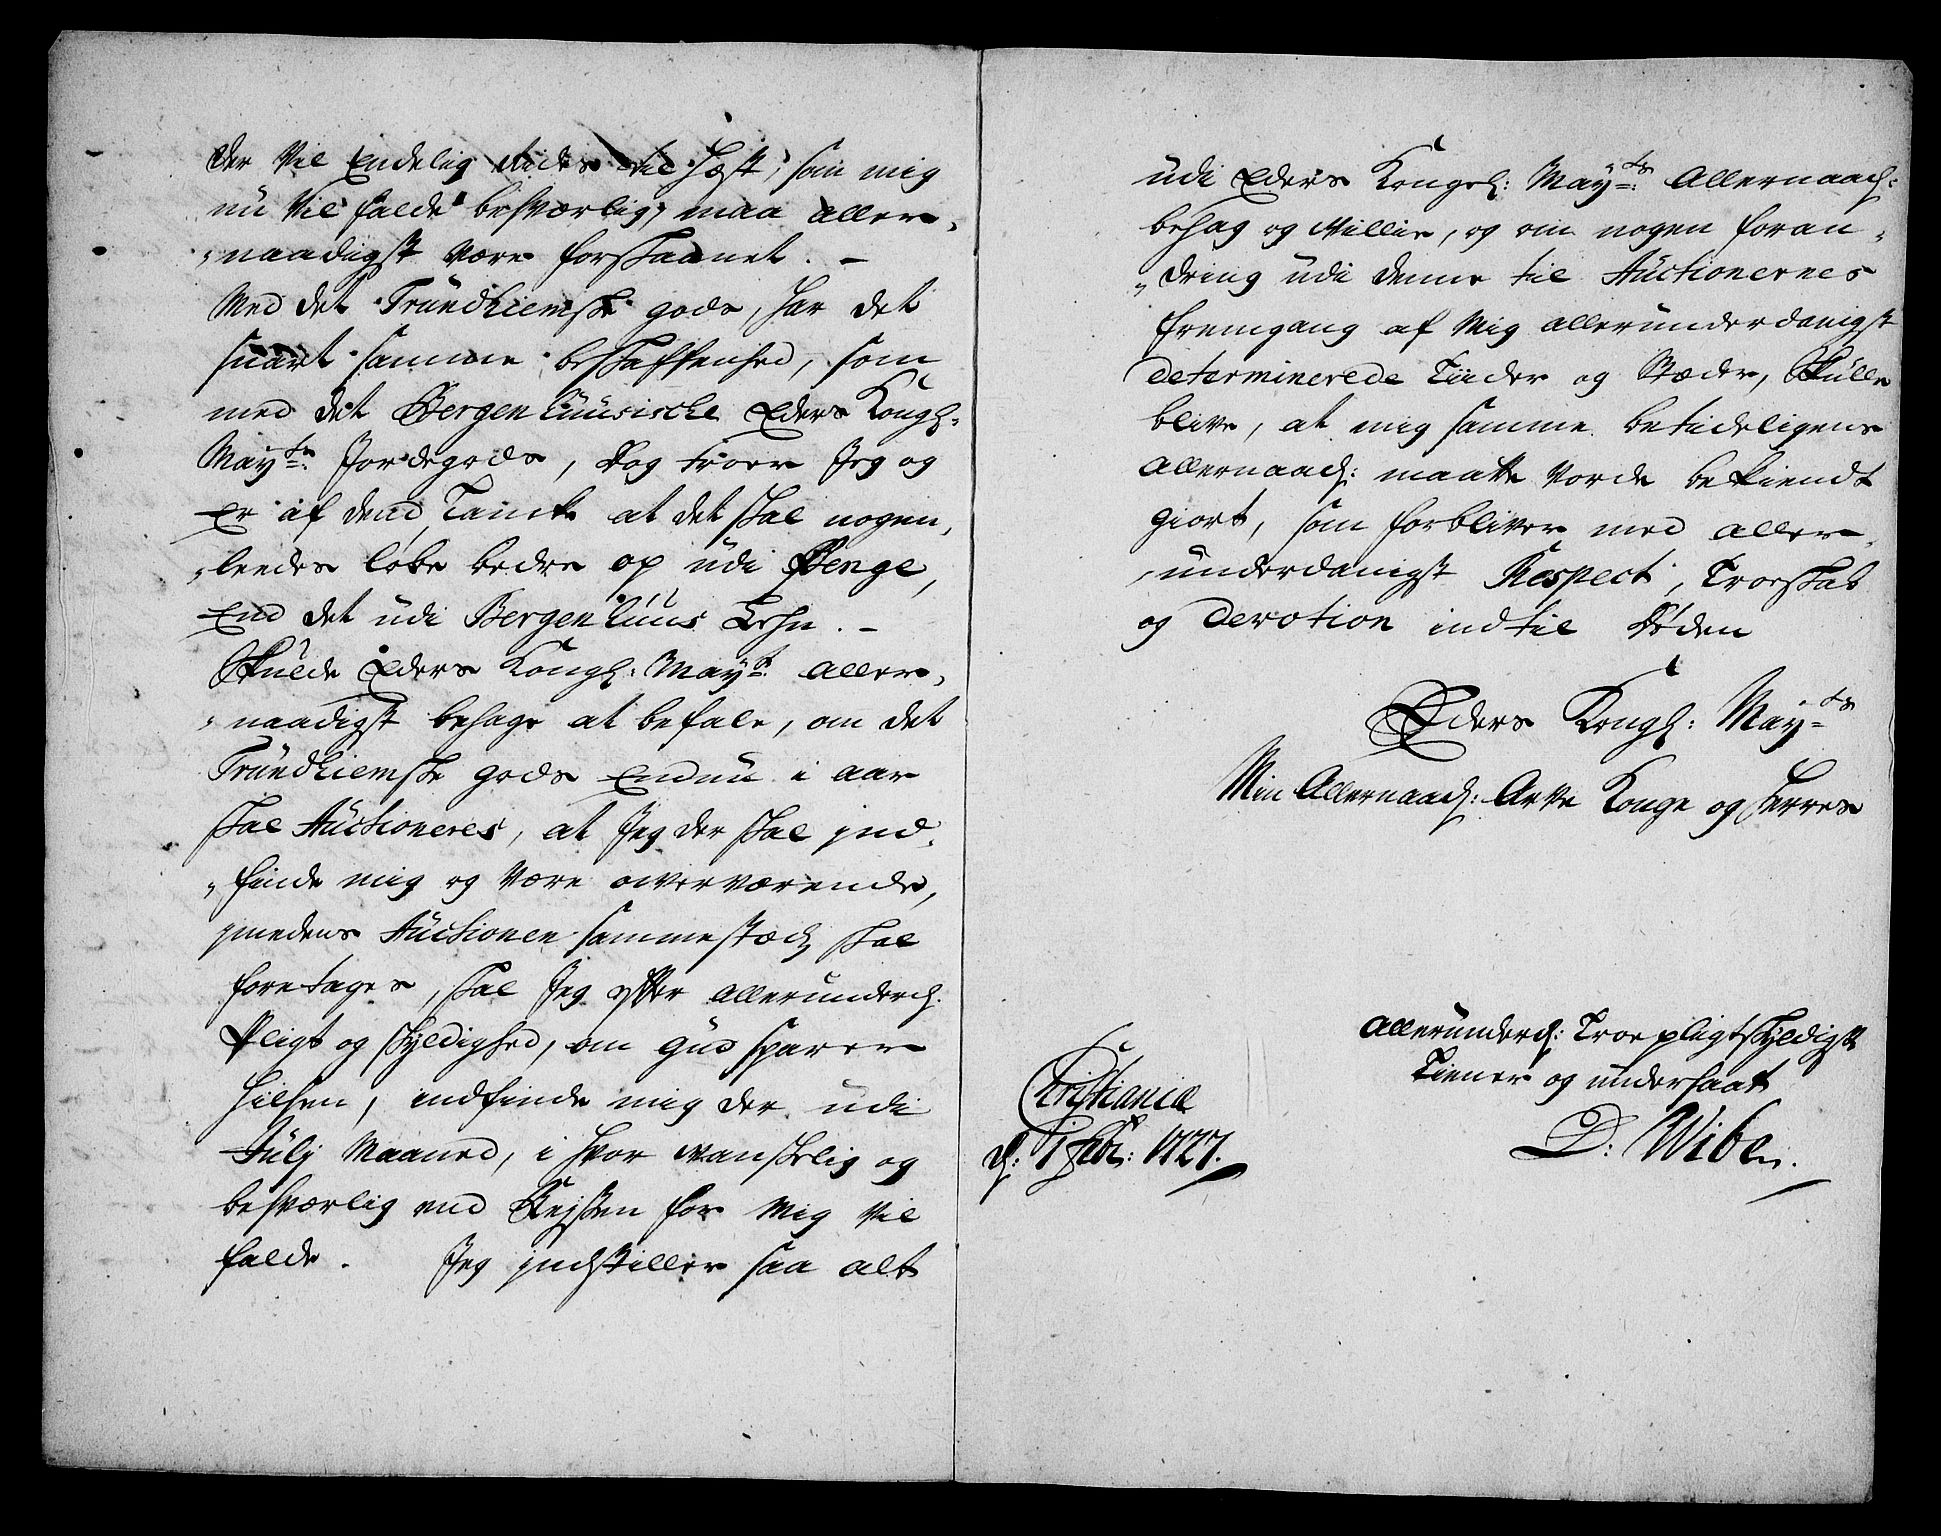 der Vil Endelig Rides til Hæst, som mig
nu Vil falde besværlig, maa aller„
„naadigst være forskaanet. –
Med det Trundhiemske gods, har det
snart samme beskaffenhed, som
med det Bergenhuusische Eders Kongl:
Mayts: Jordegods, Dog troer Jeg og
Er af dend Tancke at det skal nogen„
„leedes løbe bedre op udi Penge,
End det udi Bergenhuus Lehn. –
Skulde Eders Kongl: Mayt: aller„
„naadigst behage at befale, om det
Trundhiemske gods Endnu i aar
skal Auctioneres, at Jeg der skal ind„
„finde mig og være overværende,
imedens Auctionen sammestæd skal
foretages, skal Jeg efter allerunderd:
Pligt og skyldighed, om Gud sparer
Hilsen, indfinde mig der udi
Julj Maaned, i hvor vanskelig og
besværlig end Rejsen for Mig Vil
falde. Jeg indstiller saa alt
udi Eders Kongel: Mayts: Allernaad:
behag og Villie, og om nogen foran„
„dring udi denne til Auctionernes
fremgang af Mig allerunderdanigst
determinerede Tiider og Stæder, Skulle
blive, at mig samme betideligens
allernaad: maatte vorde bekiendt
giort, som forbliver med aller„
„underdanigst Respect, Troeskab
og Devotion indtil Døden
Eders Kongl: Mayts
Min Allernaad: Arve Konge og Herres
allerunderd: Troe pligtskyldigste
Tiener og undersaat
D: Wibe.
Christiania
d: 1 Febr: 1727.